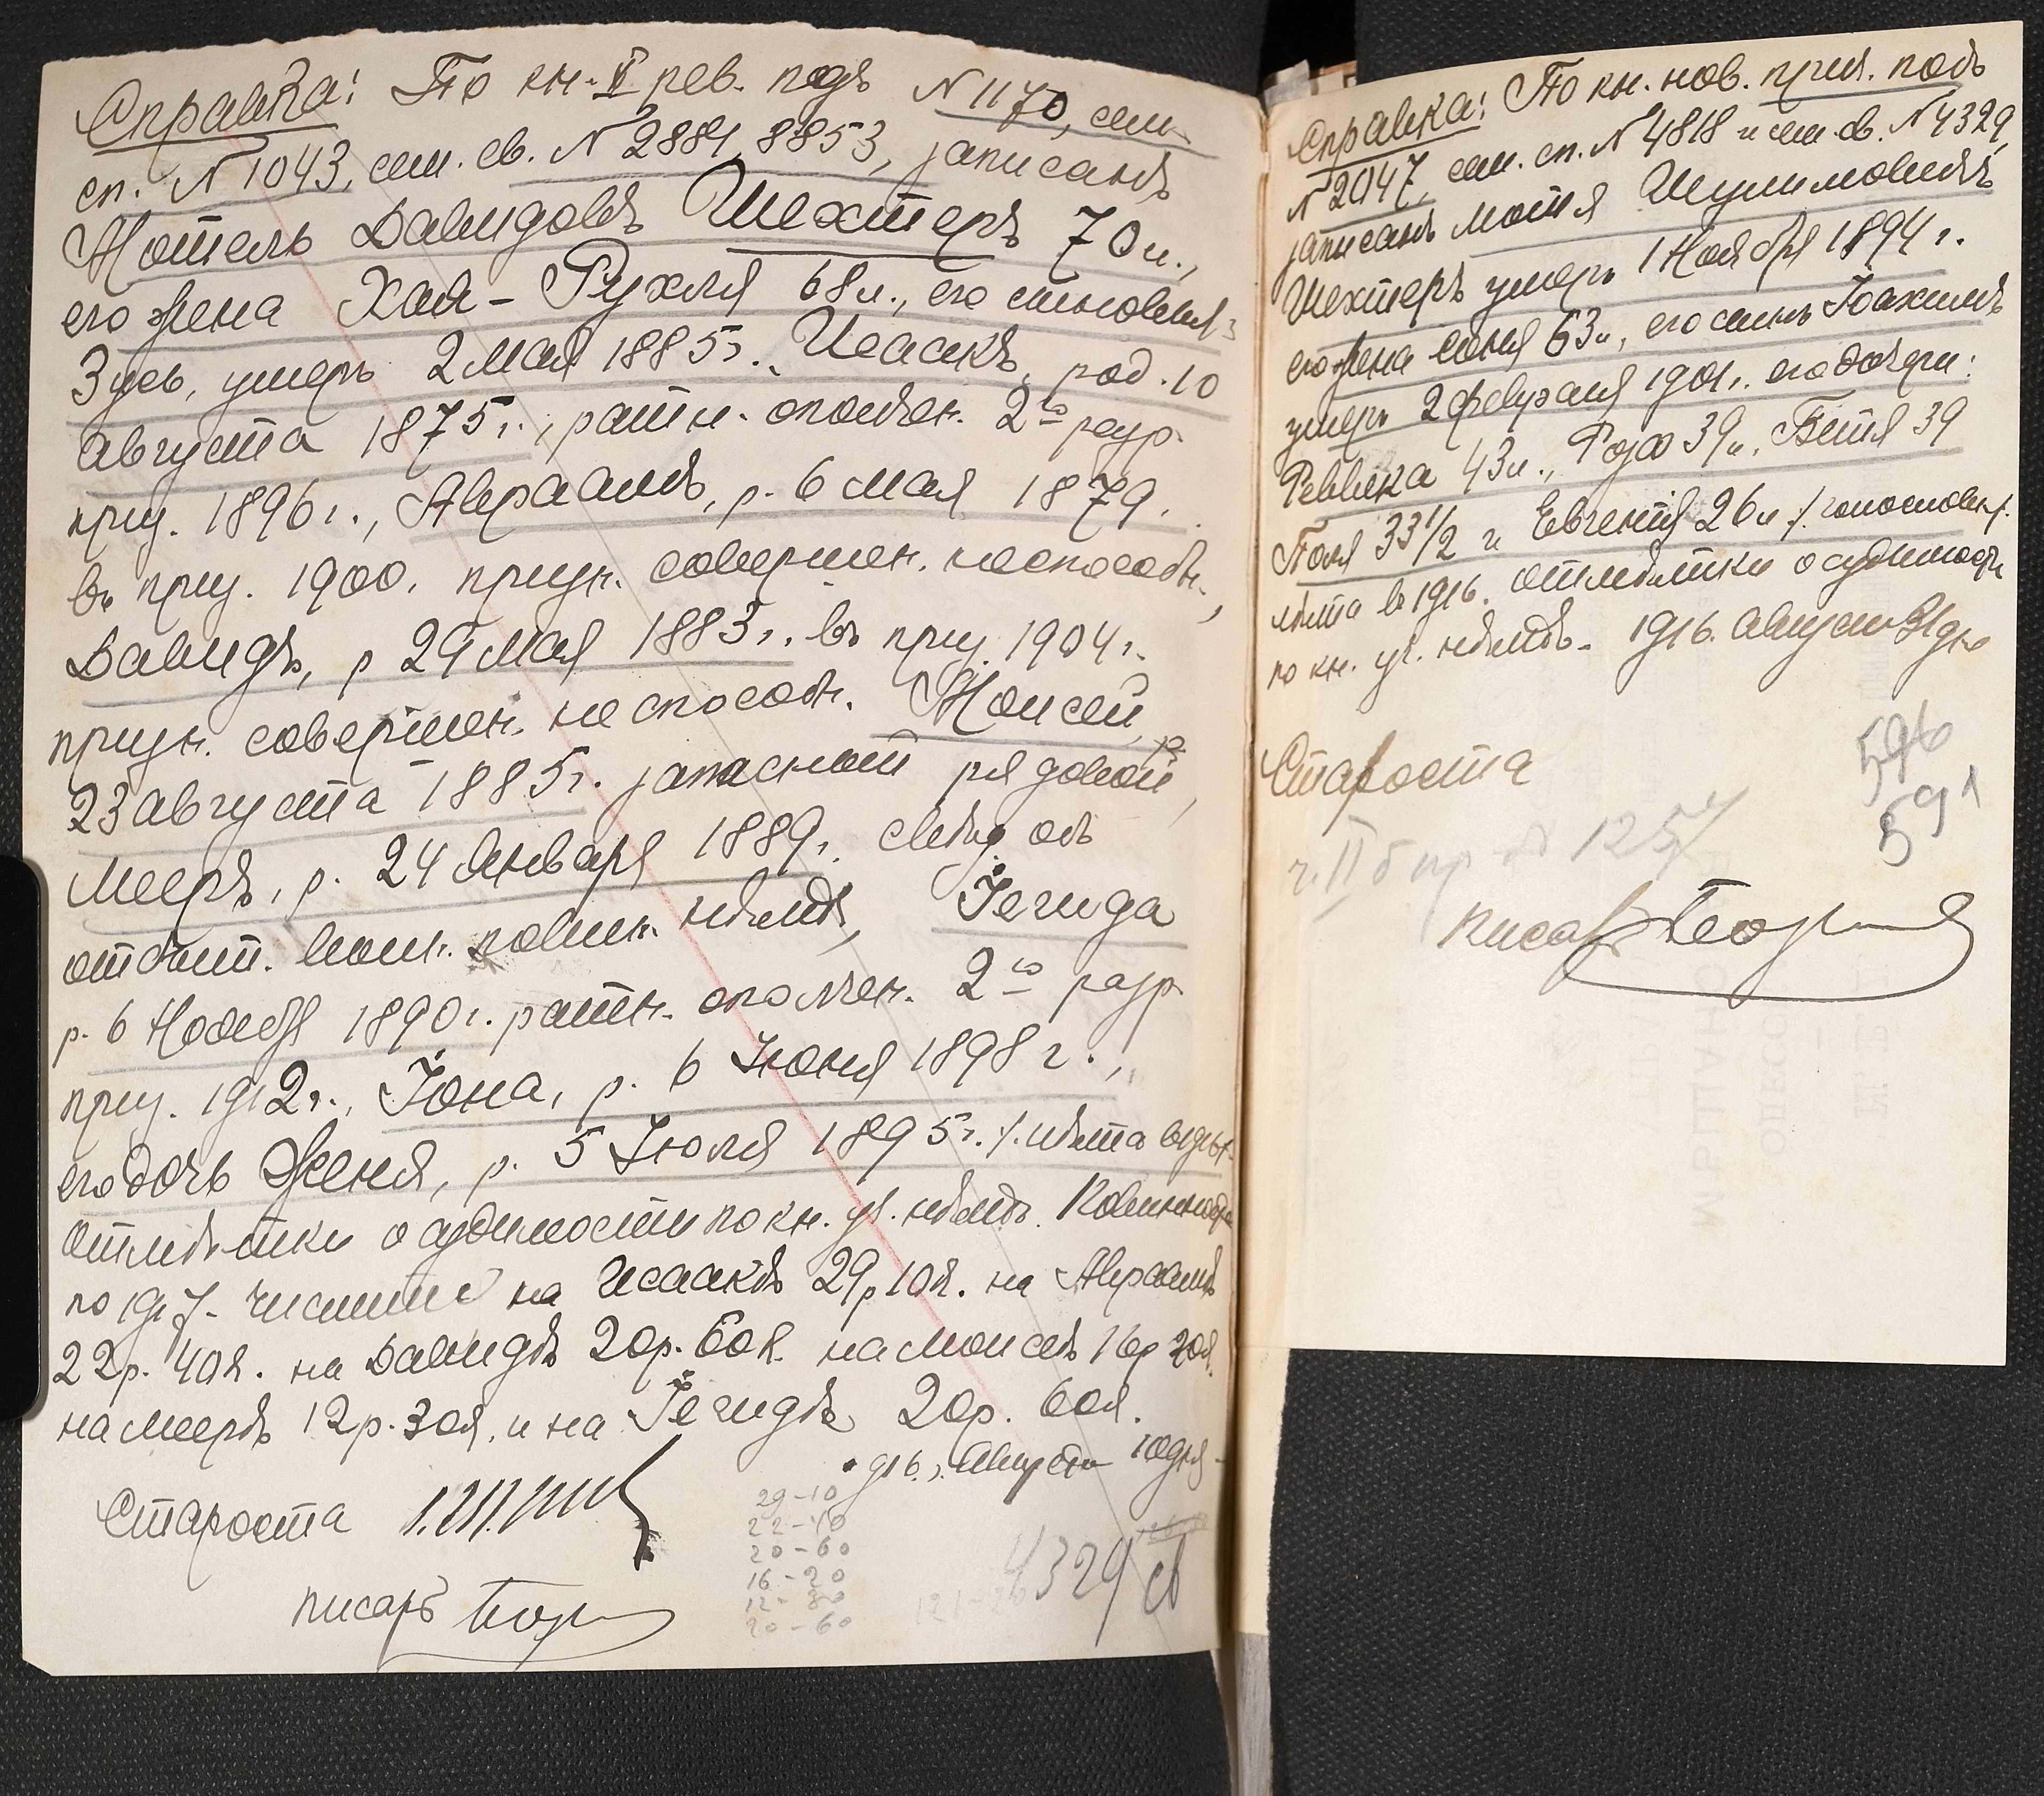 Справка: По кн. II рев. подъ N 1170, сем.
сп. N 1043, сем. св. N 2881, 8853, записанъ
Мотель Давидовъ Шехтеръ 70 л.,
его жена Хая-Рухля 68 л., его сыновья:
Зусь, умеръ 2 Мая 1885 г., Исаакъ, род. 10
Августа 1875 г., ратн. ополчен. 2го разр.
приз. 1896 г., Авраамъ, р. 6 Мая 1879.
въ приз. 1900. призн. совершен. неспособн.,
Давидъ, р 29 Мая 1883 г. въ приз. 1904 г.
призн. совершен. неспособн. Моисей, р.
23 Августа 1885 г. запасный рядовой,
Мееръ, р. 24 Января 1889 г. свѣд. объ
отбыт. воин. повин. нѣтъ, Іегида
р. 6 Ноября 1890 г. ратн. ополчен. 2го разр.
приз. 1912 г., Іона, р. 6 Іюня 1898 г.,
его дочь Женя, р. 5 Іюля 1895 г. /. лѣта
Отмѣтки о судимости по кн. уг. нѣтъ.
по 1917 на Исаакѣ 29 р 10 к. на Авраамѣ
22 р. 40 к. на Давидѣ 20 р. 60 к. на Моисеѣ 16 р 20 к.
на Меерѣ 12 р. 30 к. и на Іегидѣ 20 р. 60 к.
1916 г. Августа 10 дня
Староста
писарь
29-10
22-40
20-60
16-20
12-30
20-60
4329 св
Справка: По кн. нов. прич. подъ
N 2047, сем. сп. N 4818 и сем. св. N 4329,
записанъ Мотя Шулимовичъ
Шехтеръ умеръ 1 Ноября 1894 г.
его жена Соня 63 л, его сынъ Іоахимъ
умеръ 2 февраля 1901 г. его дочери:
Ревека 43 л., Роза 39 л., Бетя 39
Поля 33 1/2 и Евгенія 26 л /.
лѣта въ 1916. Отмѣтки о судимости
по кн. уг. нѣтъ. 1916. Августа 31 дня
596
591
Староста
писарь